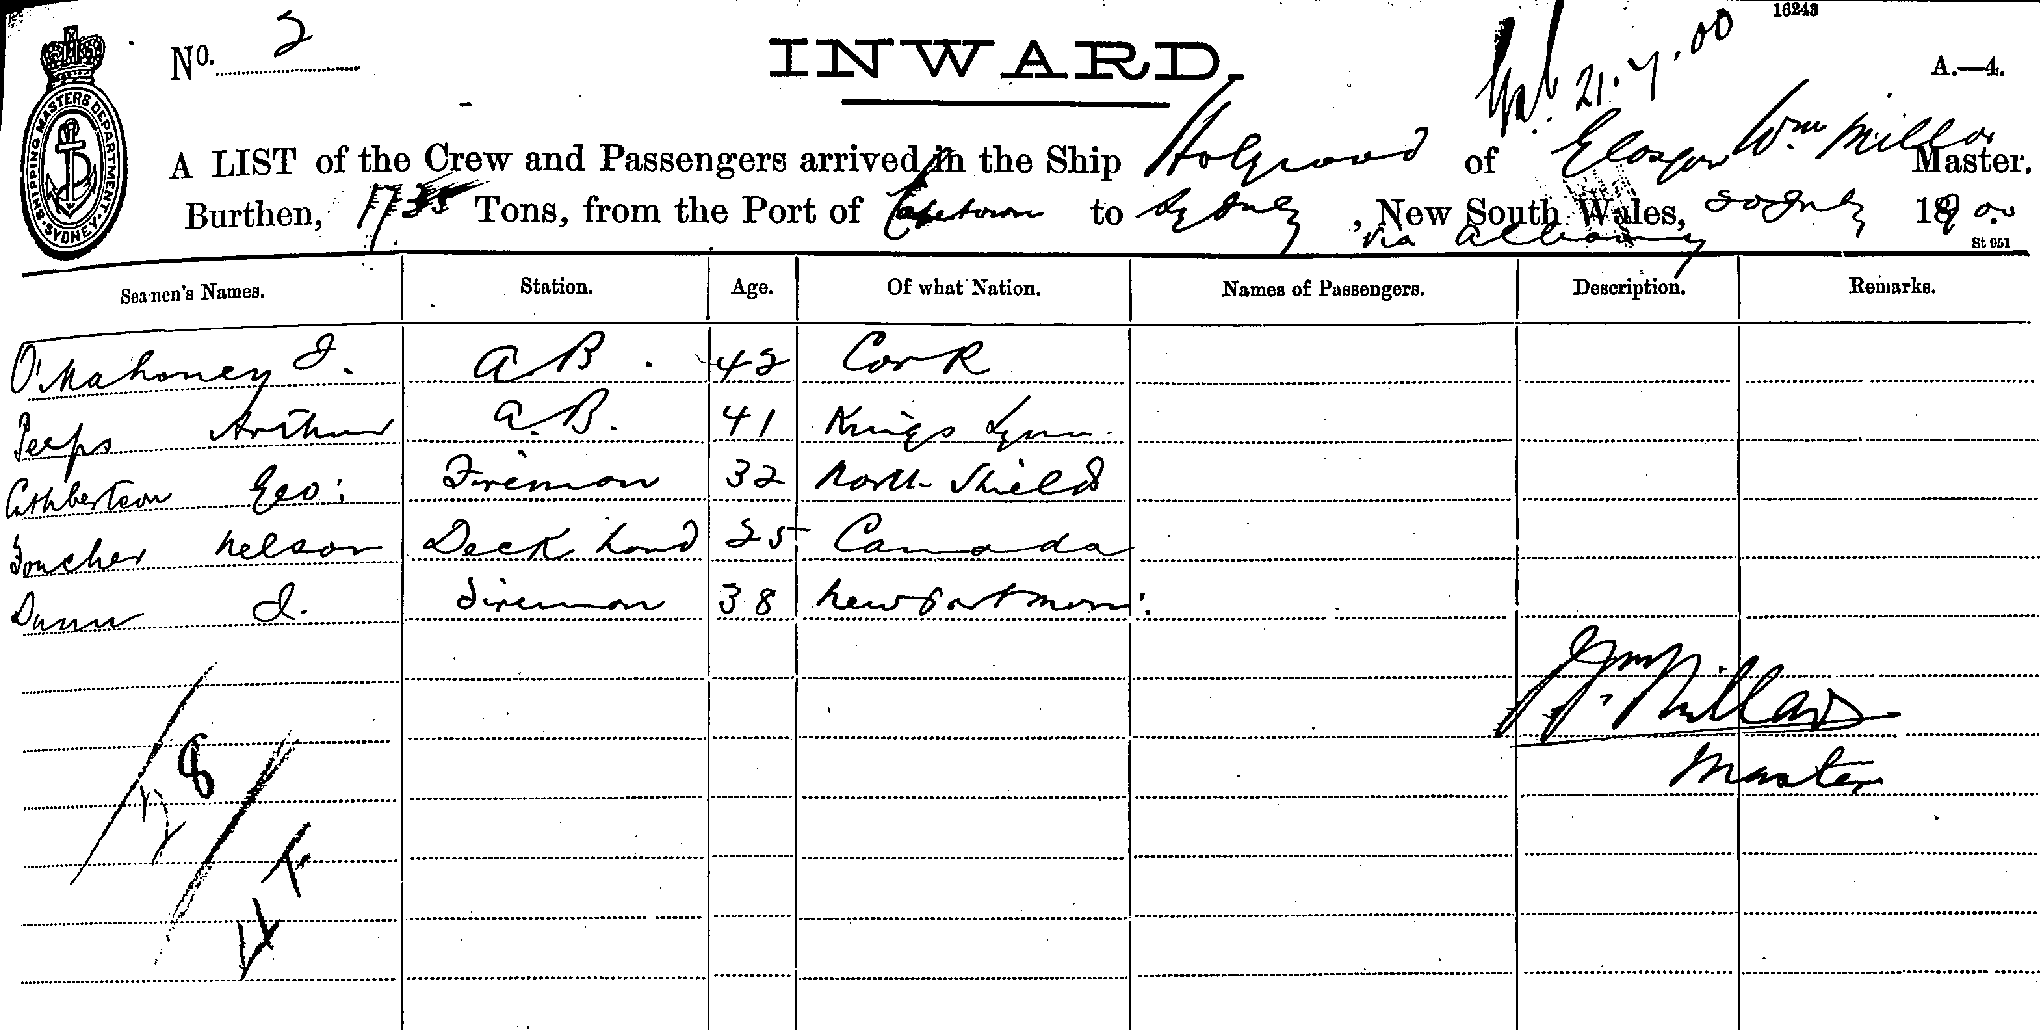 16243
No. 2
INWARD.
21.7.00
A.—4.
SHIPPING MASTERS DEPARTMENT SYDNEY
A LIST of the Crew and Passengers arrived in the Ship Holgrood of Glasgow Wm Millar Master.
Burthen, 1735 Tons, from the Port of Capetown to Sydney, New South Wales, 20 July 1900.
via Albany
St 651
Seamen's Names. Station. Age. Of what Nation. Names of Passengers. Description. Remarks.
O'Mahoney J. A B. 42 Cork
Peeps Arthur A.B. 41 Kings Lynn
Cuthbertson Geo: Fireman 32 North Shields
Foucher Nelson Deck hand 25 Canada
Dunn J. Fireman 38 Newport Mon:
Wm Millar
Master